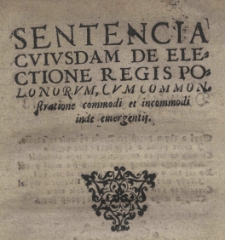 SENTENCIA
CVIVSDAM DE ELE
CTIONE REGIS PO-
LONORVM, CVM COMMON
stratione commodi et incommodi
inde emergentis.